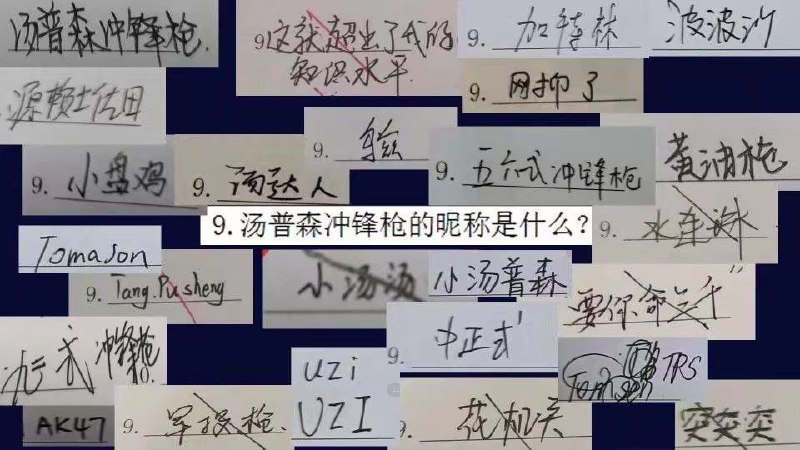 汤普森冲锋枪.
9.这就超出了我的
知识水平.
9. 加特林
波波沙
9. 网抑了
9.
9. 小盘鸡
9. 汤达人
9. 五六式冲锋枪
黄油枪
9.汤普森冲锋枪的昵称是什么?
9. 水连珠
Tomason
9. Tang.Pu sheng
小汤汤
小汤普森
要你命三千"
冲锋枪
9. 中正式
Tomnsen
TRS
uzi
UZI
AK47
9. 军投枪.
9. 花机关
突突突